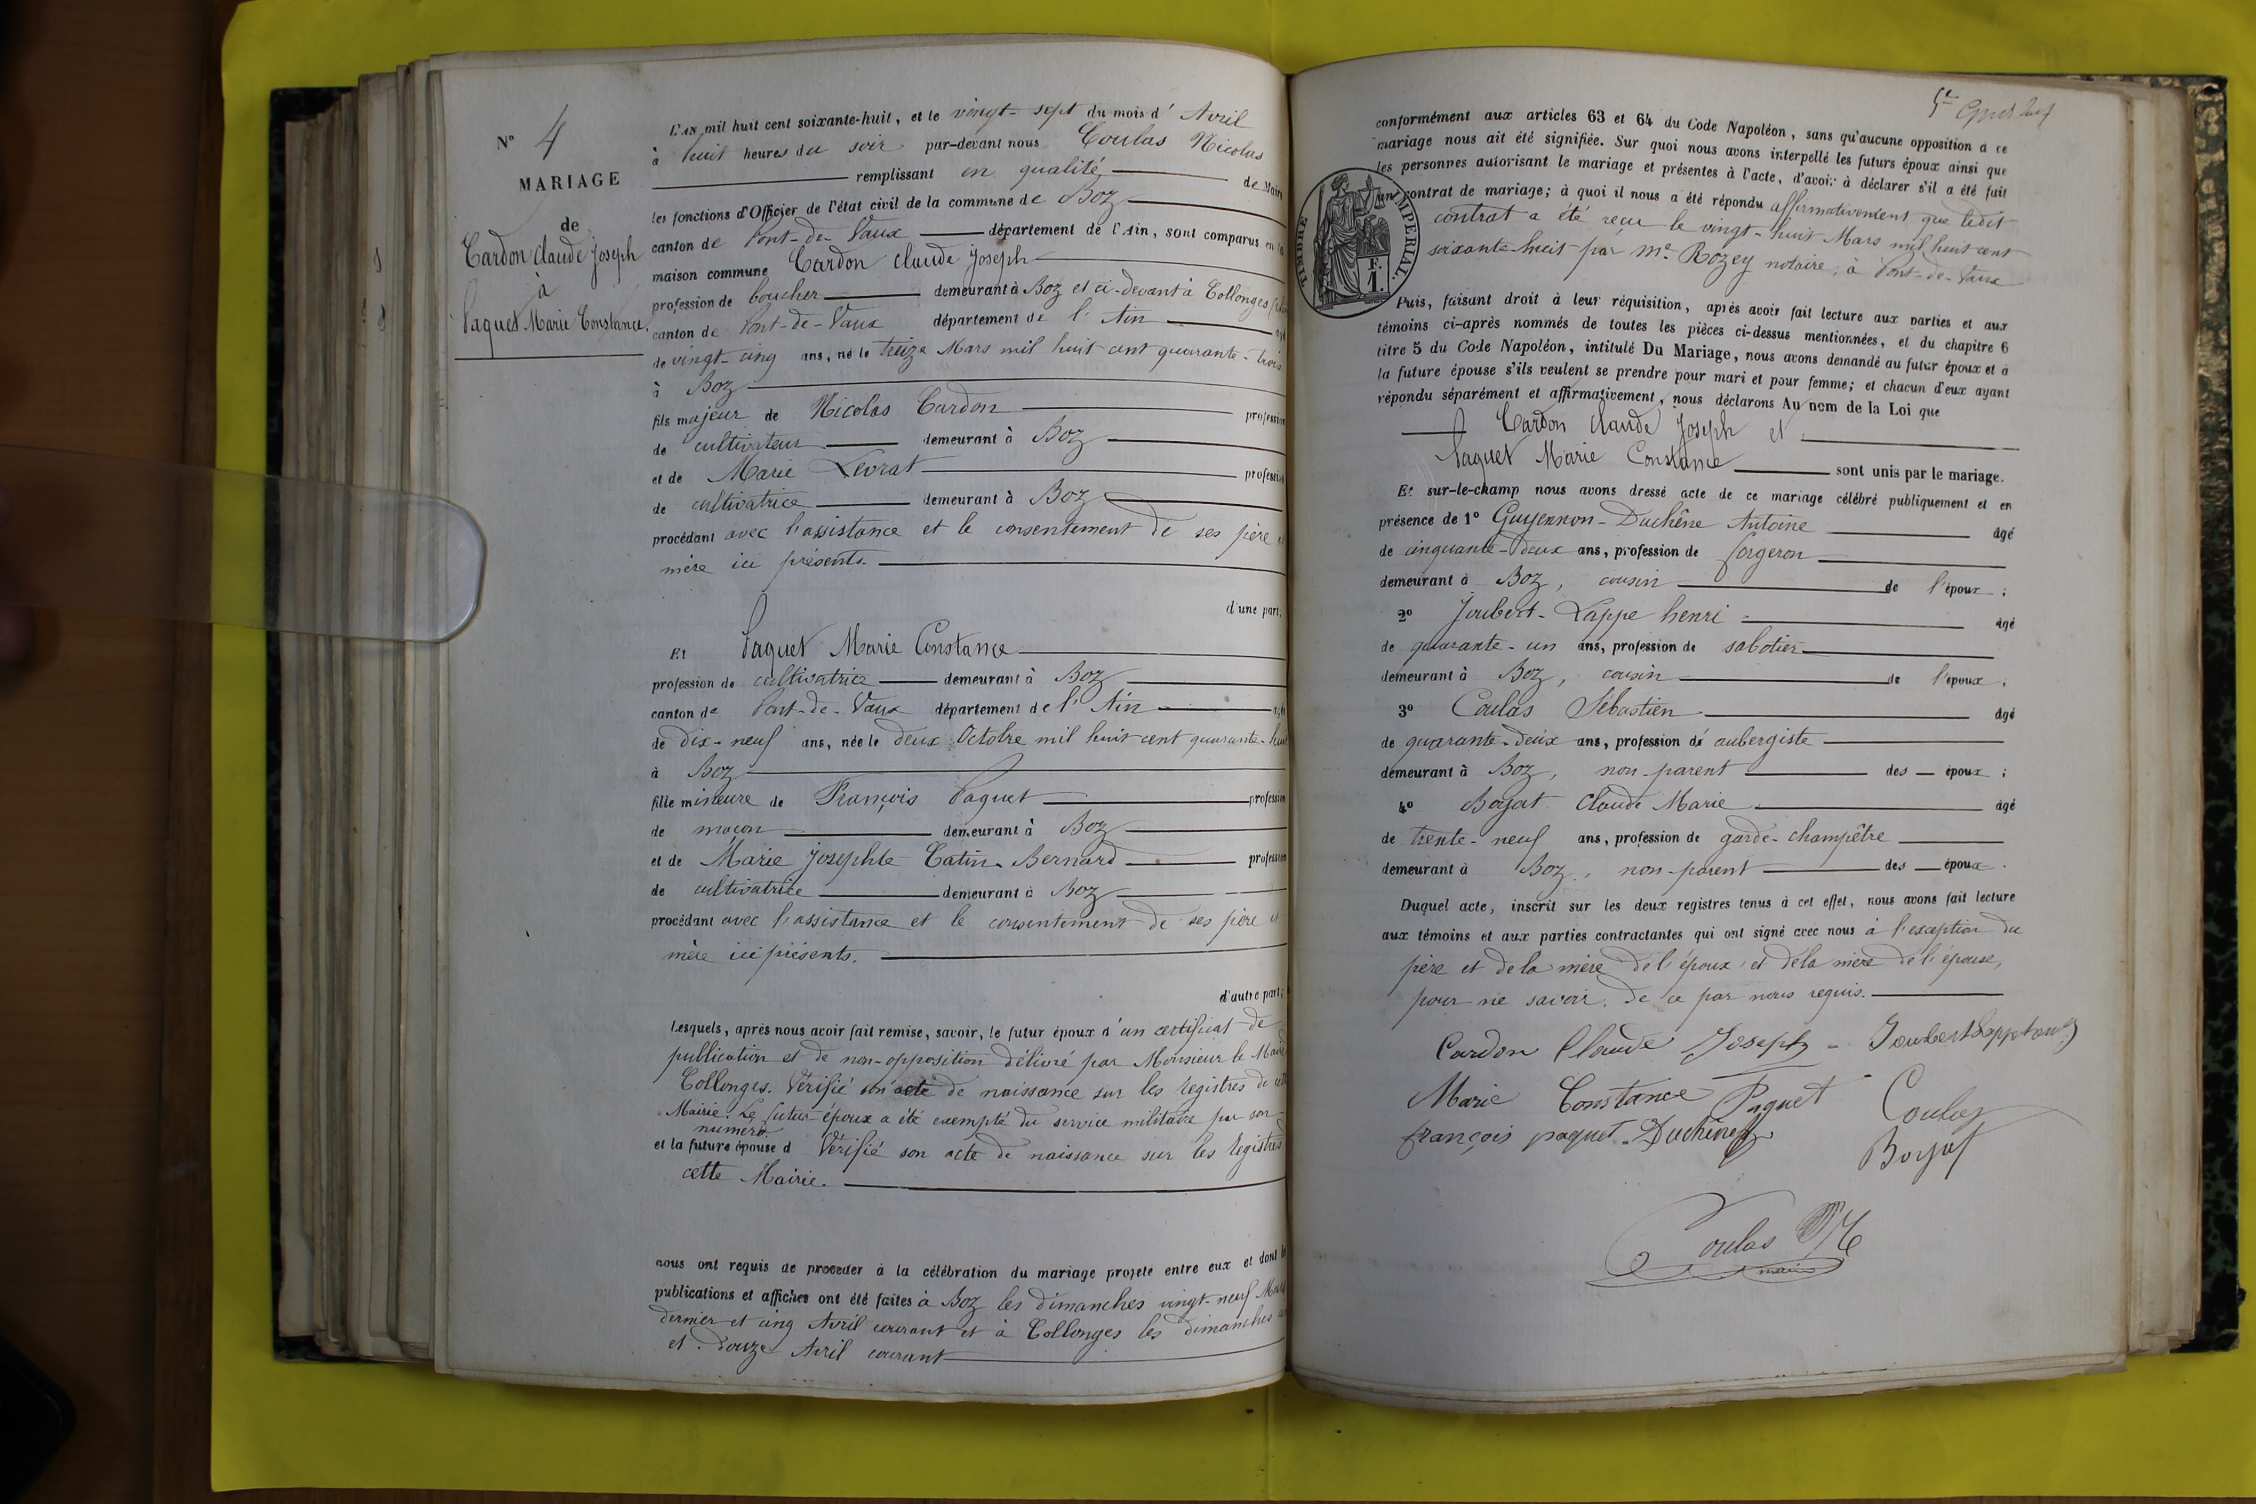 N° 4
MARIAGE
de
Cardon Claude Joseph
à
Paquet Marie Constance.
L'AN mil huit cent soixante-huit, et le vingt-sept du mois d' Avril
à huit heures du soir par-devant nous Coulas Nicolas
remplissant en qualité de Maire
les fonctions d'Officier de l'état civil de la commune de Boz
canton de Pont-de-Vaux département de l'Ain, sont comparus en la
maison commune Cardon Claude Joseph
profession de boucher demeurant à Boz et ci-devant à Collonges
canton de Pont-de-Vaux département de l' Ain âgé
de vingt-cinq ans, né le treize Mars mil huit cent quarante-trois
à Boz
fils majeur de Nicolas Cardon profession
de cultivateur demeurant à Boz
et de Marie Levrat profession
de cultivatrice demeurant à Boz
procédant avec l'assistance et le consentement de ses père et
mère ici présents.
d'une part;
Et Paquet Marie Constance
profession de cultivatrice demeurant à Boz
canton de Pont-de-Vaux département de l' Ain âgée
de dix-neuf ans, née le deux Octobre mil huit cent quarante-huit
à Boz
fille mineure de François Paquet profession
de maçon demeurant à Boz
et de Marie Josephte Catin-Bernard profession
de cultivatrice demeurant à Boz
procédant avec l'assistance et le consentement de ses père et
mère ici présents.
d'autre part;
Lesquels, après nous avoir fait remise, savoir, le futur époux d'un certificat de
publication et de non-opposition délivré par Monsieur le Maire
Collonges. Vérifié son acte de naissance sur les registres de cette
Mairie. Le futur époux a été exempté du service militaire par son
numéro.
et la future épouse d Vérifié son acte de naissance sur les registres
cette Mairie.
nous ont requis de procéder à la célébration du mariage projeté entre eux et dont les
publications et affiches ont été faites à Boz les dimanches vingt-neuf Mars
dernier et cinq Avril courant et à Collonges les dimanches
et douze Avril courant
conformément aux articles 63 et 64 du Code Napoléon, sans qu'aucune opposition à ce
mariage nous ait été signifiée. Sur quoi nous avons interpellé les futurs époux ainsi que
les personnes autorisant le mariage et présentes à l'acte, d'avoir à déclarer s'il a été fait
un contrat de mariage; à quoi il nous a été répondu affirmativement que ledit
contrat a été reçu le vingt-huit Mars mil huit cent
soixante-huit par Me Rozey notaire, à Pont-de-Vaux
TIMBRE IMPERIAL.
F.
1.
Puis, faisant droit à leur réquisition, après avoir fait lecture aux parties et aux
témoins ci-après nommés de toutes les pièces ci-dessus mentionnées, et du chapitre 6
titre 5 du Code Napoléon, intitulé Du Mariage, nous avons demandé au futur époux et à
la future épouse s'ils veulent se prendre pour mari et pour femme; et chacun d'eux ayant
répondu séparément et affirmativement, nous déclarons Au nom de la Loi que
Cardon Claude Joseph et
Paquet Marie Constance sont unis par le mariage.
Et sur-le-champ nous avons dressé acte de ce mariage célébré publiquement et en
présence de 1° Guyennon-Duchêne Antoine âgé
de cinquante-deux ans, profession de forgeron
demeurant à Boz, cousin de l'époux;
2° Joubert-Lappe henri âgé
de quarante-un ans, profession de sabotier
demeurant à Boz, cousin de l'époux;
3° Coulas Sébastien âgé
de quarante-deux ans, profession d' aubergiste
demeurant à Boz, non-parent des époux;
4° Boyat Claude Marie âgé
de trente-neuf ans, profession de garde-champêtre
demeurant à Boz, non-parent des époux.
Duquel acte, inscrit sur les deux registres tenus à cet effet, nous avons fait lecture
aux témoins et aux parties contractantes qui ont signé avec nous à l'exception du
père et de la mère de l'époux et de la mère de l'épouse,
pour ne savoir, de ce par nous requis.
Cardon Claude Joseph
Marie Constance Paquet Coulas
françois paquet Duchêne Boyat
Coulas
maire